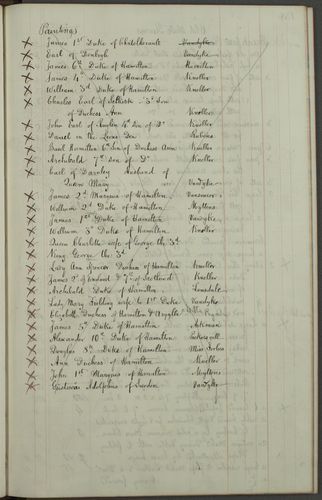 Paintings
James 1st Duke of Chatelherault Vandyke
Earl of Denbigh Vandyke
James 6th Duke of Hamilton Hamilton
James 4th Duke of Hamilton Kneller
William 3d Duke of Hamilton Kneller
Charles Earl of Selkirk 3d Son
of Duchess Ann Kneller
John Earl of Ruglen 4th Son of Do Kneller
Daniel in the Lions Den Rubens
Basil Hamilton 6th Son of Duchess Ann Kneller
Archibald 7th Son of Do Kneller
Earl of Darnley Husband of
Queen Mary Vandyke
James 2d Marquis of Hamilton Vansomer
William 2d Duke of Hamilton Mytens
James 1st Duke of Hamilton Vandyke
William 3d Duke of Hamilton Kneller
Queen Charlotte wife of George the 3d
King George the 3d
Lady Ann Spencer Duchess of Hamilton Kneller
James 2d of England & 7th of Scotland Kneller
Archibald Duke of Hamilton
Lady Mary Fielding wife to 1st Duke Vandyke
Elizabeth Duchess of Hamilton & Argylle
James 5th Duke of Hamilton Aikman
Alexander 10th Duke of Hamilton
Douglas 8th Duke of Hamilton Miss Forbes
Ann Duchess of Hamilton Kneller
John 1st Marquis of Hamilton Mytens
Gustavus Adolphus of Sweden Vandyke